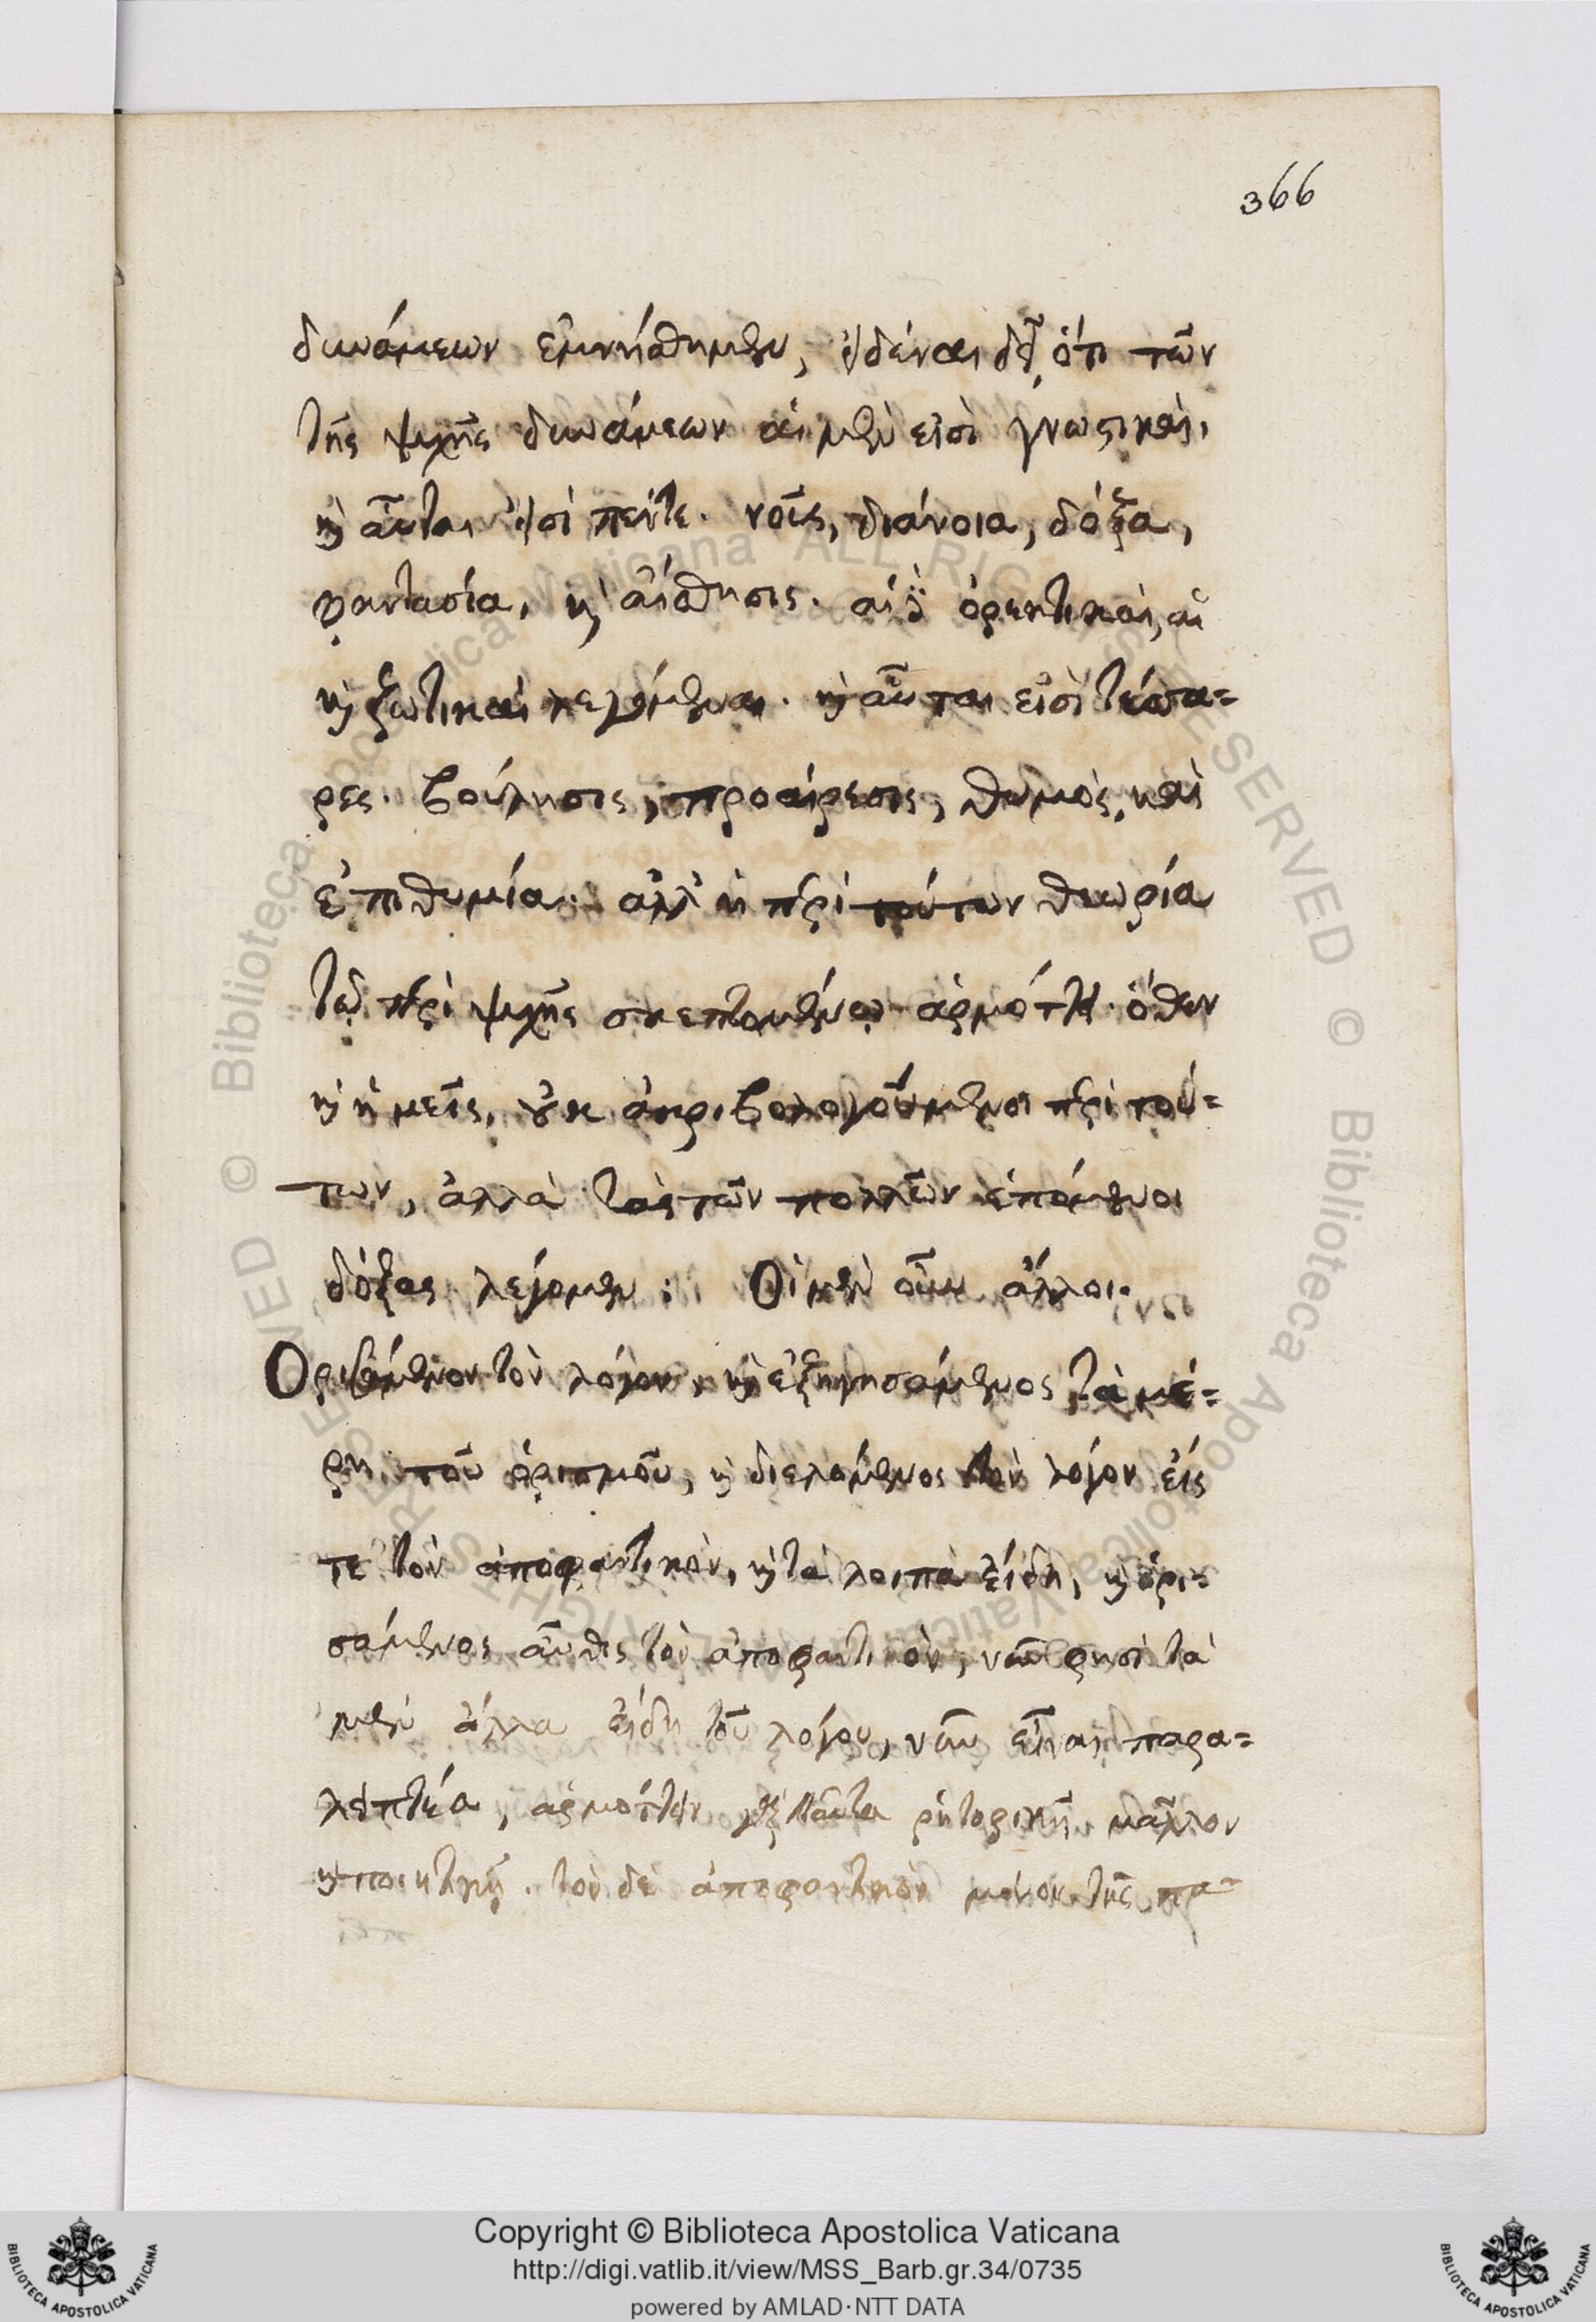 366
δυνάμεων ἐμνήσθημεν, εἰδέναι δεῖ, ὅτι τῶν
τῆς ψυχῆς δυνάμεων αἱ μὲν εἰσὶ γνωστικαὶ,
καὶ αὗται εἰσί πέντε. νοῦς, διάνοια, δόξα,
φαντασία, καὶ αἴσθησις. αἱ δὲ ὀρεκτικαὶ, αἱ
καὶ ζωτικαὶ λεγόμεναι. καὶ αὗται εἰσὶ τέσσα=
ρες. βούλησις, προαίρεσις, θυμὸς, καὶ
ἐπιθυμία. ἀλλ' ἡ περὶ τούτων θεωρία
τῷ περὶ ψυχῆς σκεπτομένῳ ἁρμόττει. ὅθεν
καὶ ἡμεῖς, οὐκ ἀκριβολογούμενοι περὶ τού=
των, ἀλλὰ ταῖς τῶν πολλῶν ἑπόμενοι
δόξαις λέγομεν : Οἱ μὲν οὖν ἄλλοι.
Ὁρισάμενον τὸν λόγον, καὶ ἐξηγησάμενος τὰ μέ=
ρη τοῦ ὁρισμοῦ, καὶ διελόμενος τὸν λόγον εἰς
τε τὸν ἀποφαντικὸν, καὶ τὰ λοιπὰ εἴδη, καὶ ὁρι=
σάμενος αὖθις τὸν ἀποφαντικὸν, νῦν φησὶ τὰ
μὲν ἄλλα εἴδη τοῦ λόγου, νῦν εἶναι παρα=
λειπτέα, ἁρμόττειν γὰρ ταῦτα ῥητορικῇ μᾶλλον
καὶ ποιητικῇ. τὸν δὲ ἀποφαντικὸν μόνον τῆς πα=
Copyright © Biblioteca Apostolica Vaticana
http://digi.vatlib.it/view/MSS_Barb.gr.34/0735
powered by AMLAD·NTT DATA